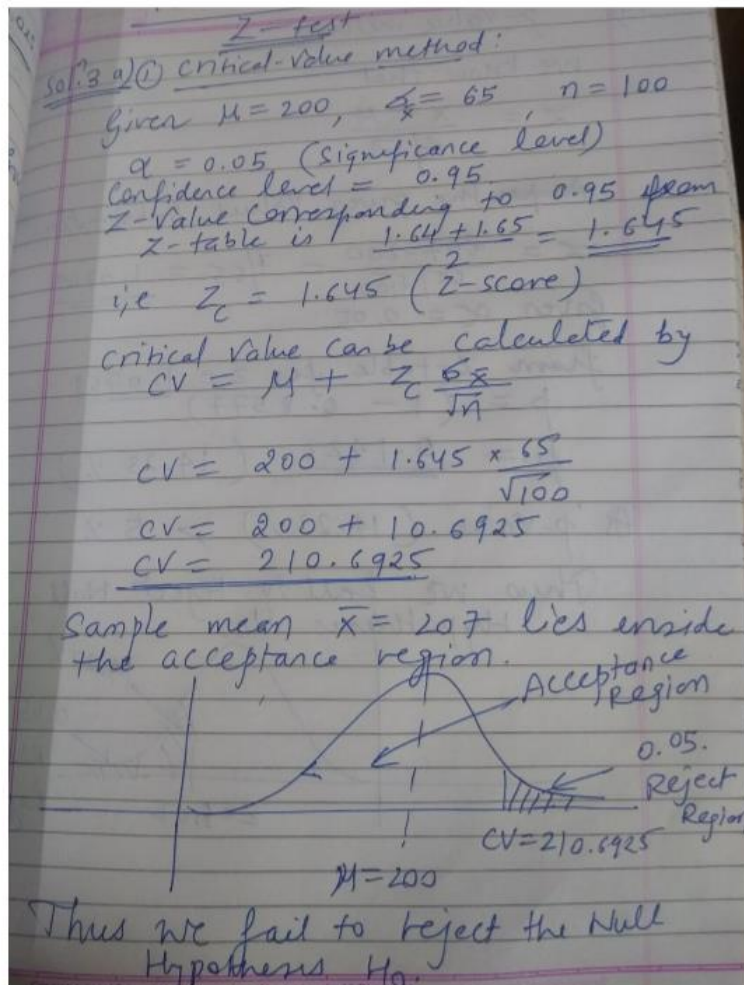 Z-test
Sol: 3 a) ① Critical-value method:
Given μ = 200, σx̄ = 65, n = 100
α = 0.05 (Significance level)
Confidence level = 0.95
Z-Value corresponding to 0.95 from
Z-table is (1.64 + 1.65)/2 = 1.645
i,e Zc = 1.645 (Z-score)
Critical Value can be calculated by
CV = μ + Zc σx̄/√n
CV = 200 + 1.645 × 65/√100
CV = 200 + 10.6925
CV = 210.6925
Sample mean x̄ = 207 lies inside
the acceptance region.
Acceptance
Region
0.05.
Reject
Region
CV=210.6925
μ=200
Thus we fail to reject the Null
Hypothesis H₀.